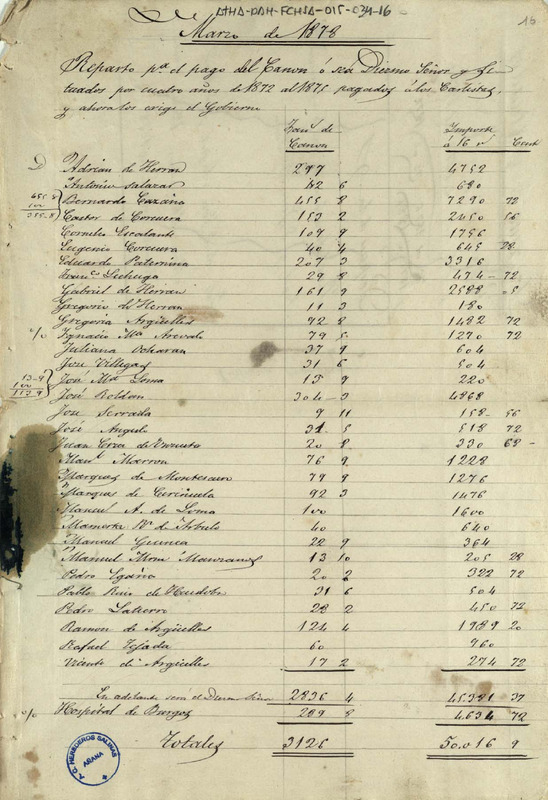 ATHA-DAH-FCHSA-015-034-16
16
Marzo de 1878
Reparto pª el pago del Canon ó sea Diezmo Señor, y
tuados por cuatro años de 1872 al 1875 pagados á los Carlistas,
y ahora los exige el Gobierno
Fanˢ de Canon Importe á 16 rˢ Cent
D Adrian de Herran 297 4752
Antonio Salazar 42 6 680
655.8 Bernardo Cazaña 455 8 7290 72
100
355.8 Castor de Corcuera 153 2 2450 56
Cornelio Escalante 109 9 1756
Eugenio Corcuera 40 4 645 28
Eduardo Paternina 207 3 3316
Franᶜᵒ Lechuga 29 8 474 72
Gabriel de Herran 161 9 2588
Gregorio de Herran 11 3 180
Gregoria Argüelles 92 8 1482 72
o/o Ignacio Mª Arevalo 79 5 1270 72
Juliana Ocharan 37 9 604
Jose Villegas 31 6 504
13-9 José Mª Loma 13 9 220
100
113-9 José Roldan 304 3 4868
Jose Serrada 9 11 158 56
José Angulo 31 5 518 72
Juan Cruz de 20 8 330 68
Manˡ Marron 76 9 1228
Marques de Montesacro 79 8 1276
Marques de Ceriñuela 92 3 1476
Manuel A. de Loma 100 1600
Mamerta de 40 640
Manuel Guinea 22 9 364
Manuel Mora Manzanos 13 10 205 28
Pedro Egaña 20 2 322 72
Pablo Ruiz de 31 6 504
Pedro 28 2 450 72
Ramon de Argüelles 124 4 1989 20
Rafael Tejada 60 960
Vicente de Argüelles 17 2 274 72
En adelante será el Diezmo Señor 2836 4 45.381 37
o/o Hospital de Burgos 289 8 4.634 72
Totales 3126 50.016 9
T.O. HEREDEROS SALINAS
ARAMA